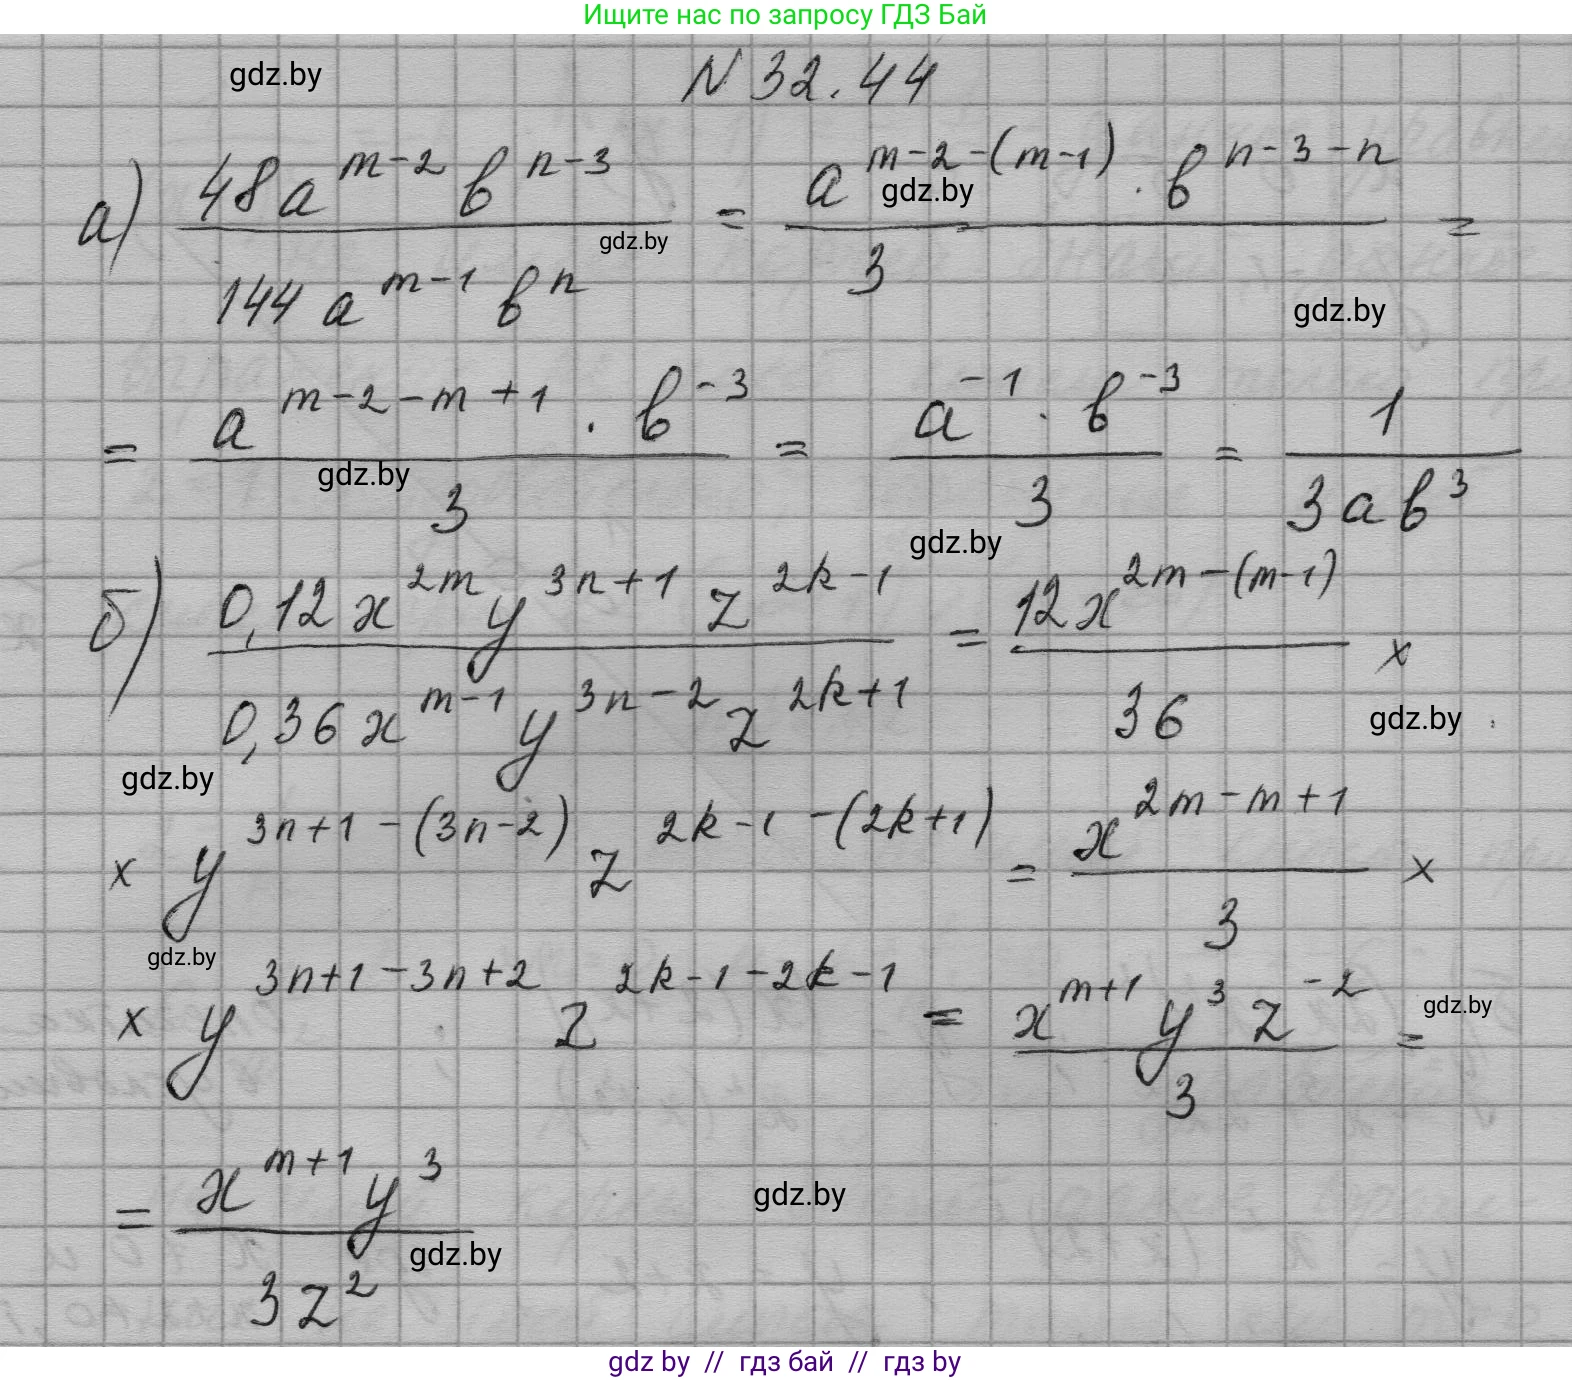 Ищите нас по запросу ГДЗ Бай
gdz.by
N 32.44
а) 48a^(m-2) b^(n-3) / 144a^(m-1) b^n = a^(m-2-(m-1)) · b^(n-3-n) / 3 =
gdz.by
gdz.by
gdz.by
= a^(m-2-m+1) · b^(-3) / 3 = a^(-1) · b^(-3) / 3 = 1 / 3ab^3
gdz.by
gdz.by
б) 0,12x^(2m) y^(3n+1) z^(2k-1) / 0,36x^(m-1) y^(3n-2) z^(2k+1) = 12x^(2m-(m-1)) / 36 ×
gdz.by
gdz.by
× y^(3n+1-(3n-2)) z^(2k-1-(2k+1)) = x^(2m-m+1) / 3 ×
gdz.by
× y^(3n+1-3n+2) z^(2k-1-2k-1) = x^(m+1) y^3 z^(-2) / 3 =
gdz.by
= x^(m+1) y^3 / 3z^2
gdz.by
gdz.by
gdz by // гдз бай // гдз by